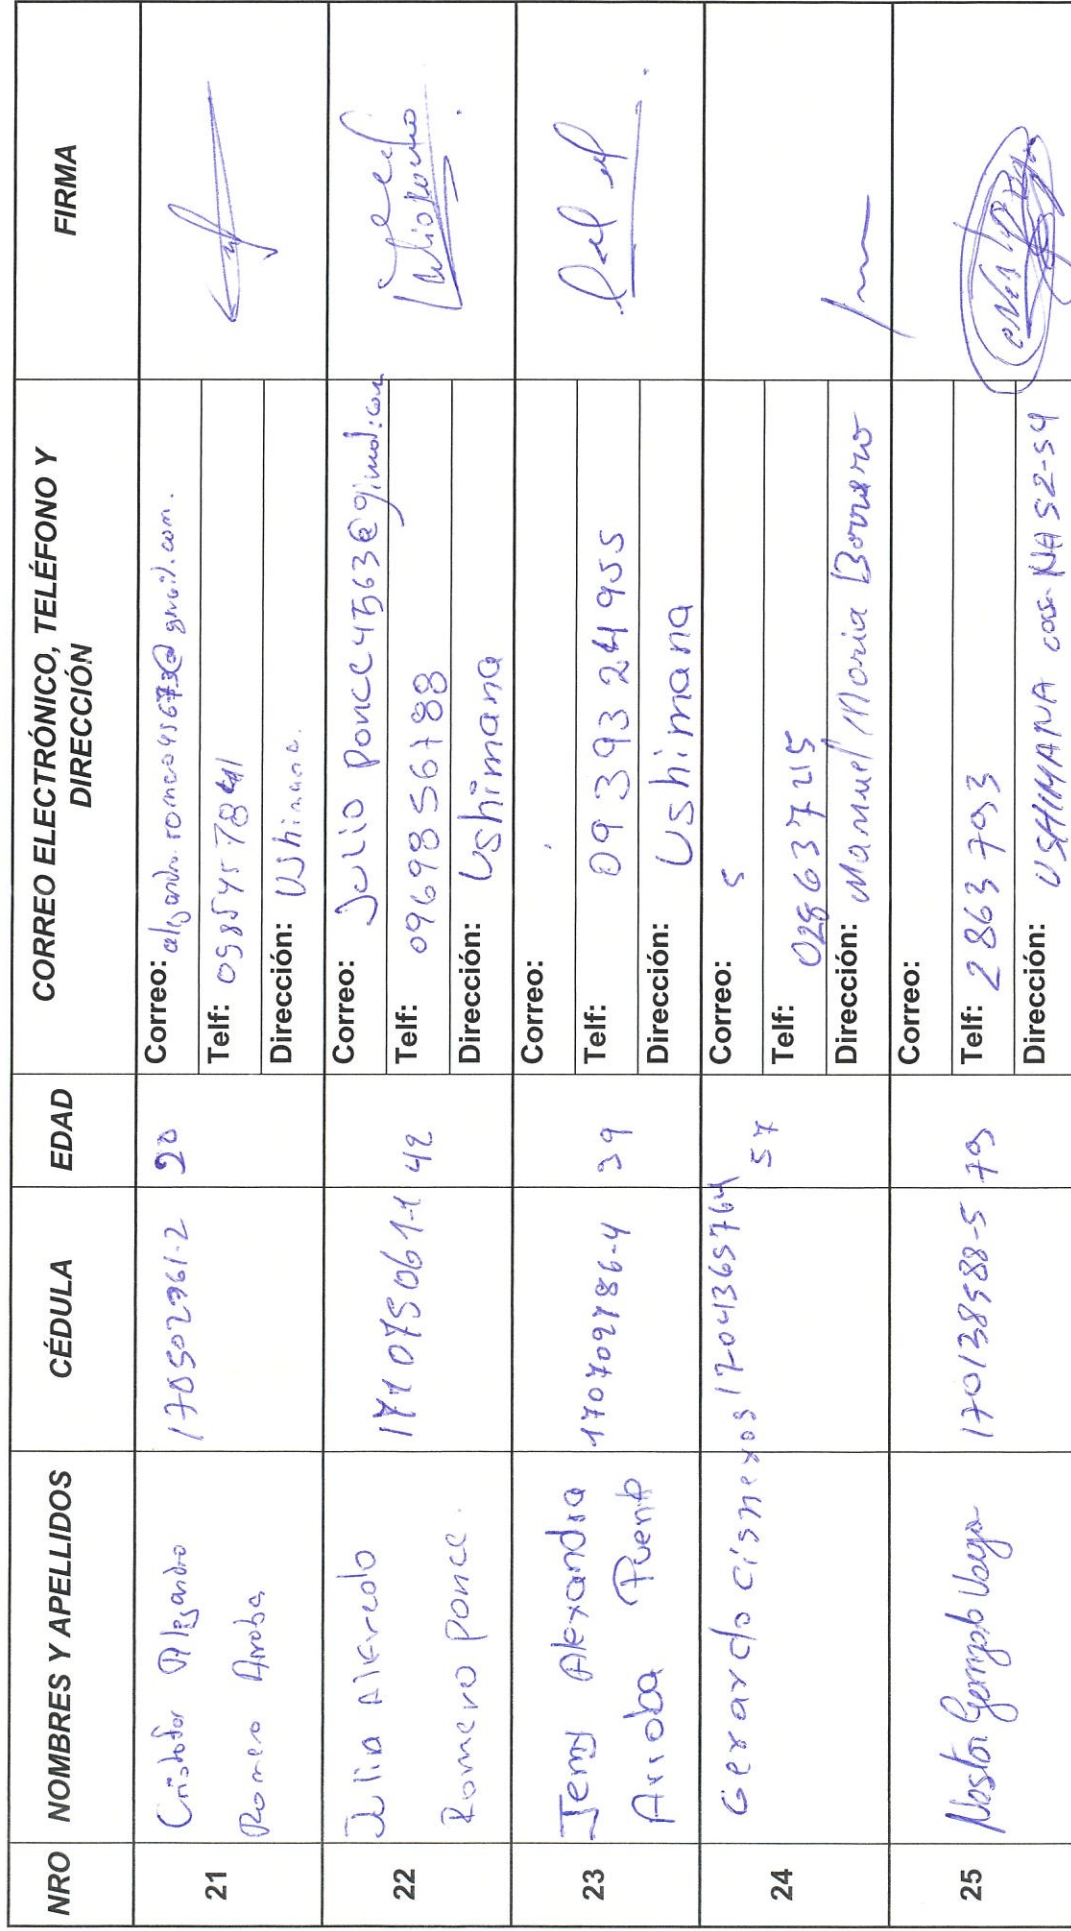 NRO NOMBRES Y APELLIDOS CÉDULA EDAD CORREO ELECTRÓNICO, TELÉFONO Y DIRECCIÓN FIRMA
21
Cristofer Alejandro
Romero Arroba
170502961-2
20
Correo:
Telf:
Dirección:
22
Romero Ponce.
171075061-1
42
Correo: Julio Ponce4563@
Telf: 0969856788
Dirección: Ushimana
23
Jemy Alexandra
Arroba Puente
170709786-4
39
Correo:
Telf: 0939324955
Dirección: Ushimana
24
Gerardo cisneros
1704365764
57
Correo: s
Telf: 028637215
Dirección: Manuel Maria Borrero
25
Nestor Gonzalo Vega
170138588-5
79
Correo:
Telf: 2863793
Dirección: USHIMANA casa